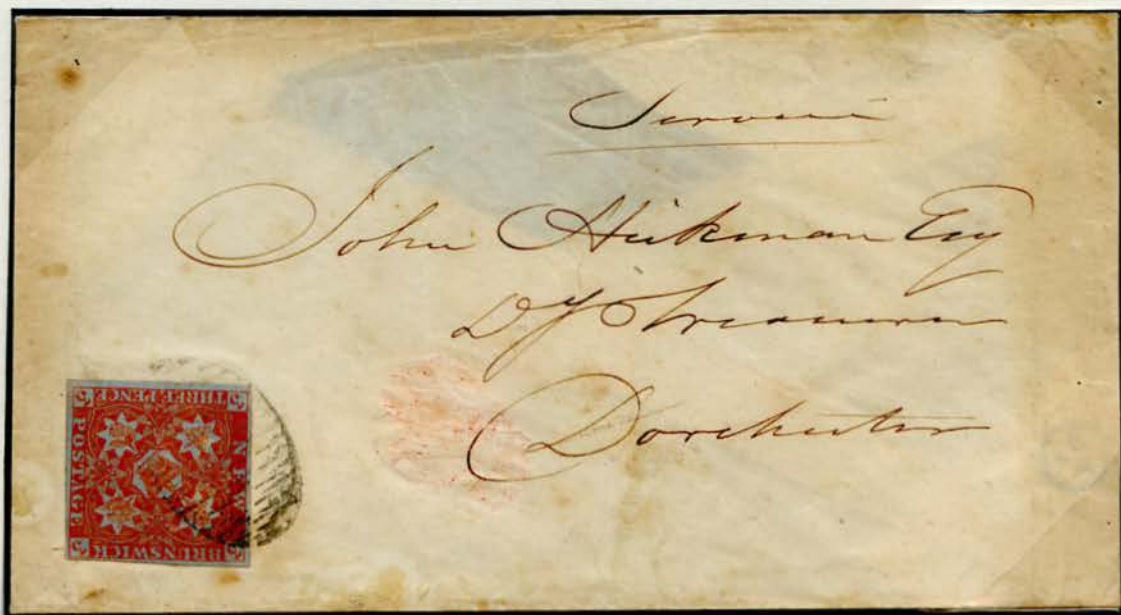 Service
John Hickman Esq
Dy Treasurer
Dorchester
3 NEW 3
BRUNSWICK
3 POSTAGE 3
THREE PENCE